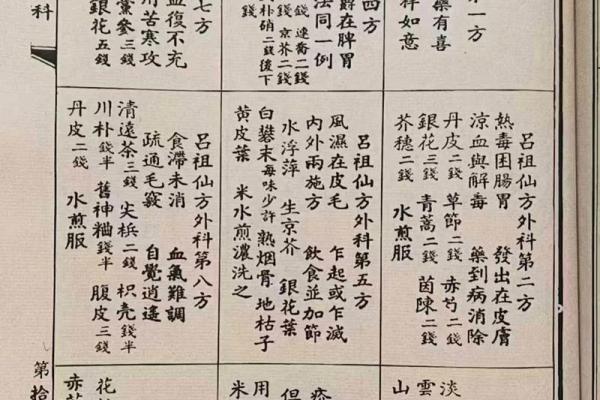 第一方
藥有喜
如意
四方
在脾胃
法同一例
錢 連喬二錢
錢 京芥二錢
朴硝二錢後下
七方
血復不充
用苦寒攻
黨參三錢
銀花五錢
科
呂祖仙方外科第二方
熱毒困腸胃 發出在皮膚
涼血與解毒 藥到病消除
丹皮二錢 草節二錢 赤芍二錢
銀花三錢 青蒿二錢 茵陳二錢
芥穗二錢 水煎服
呂祖仙方外科第五方
風濕在皮毛 乍起或乍滅
內外兩施方 飲食並加節
水浮萍 生京芥 銀花葉
白礬末每味少許 熟烟骨 地枯子
黃皮葉 米水煎濃洗之
呂祖仙方外科第八方
食滯未消 血氣難調
疏通毛竅 自覺逍遙
清遠茶三錢 尖梹二錢 枳壳錢半
川朴錢半 舊神粬錢半 腹皮三錢
丹皮二錢 水煎服
淡
雲
山
但
用
米
花
赤
第拾